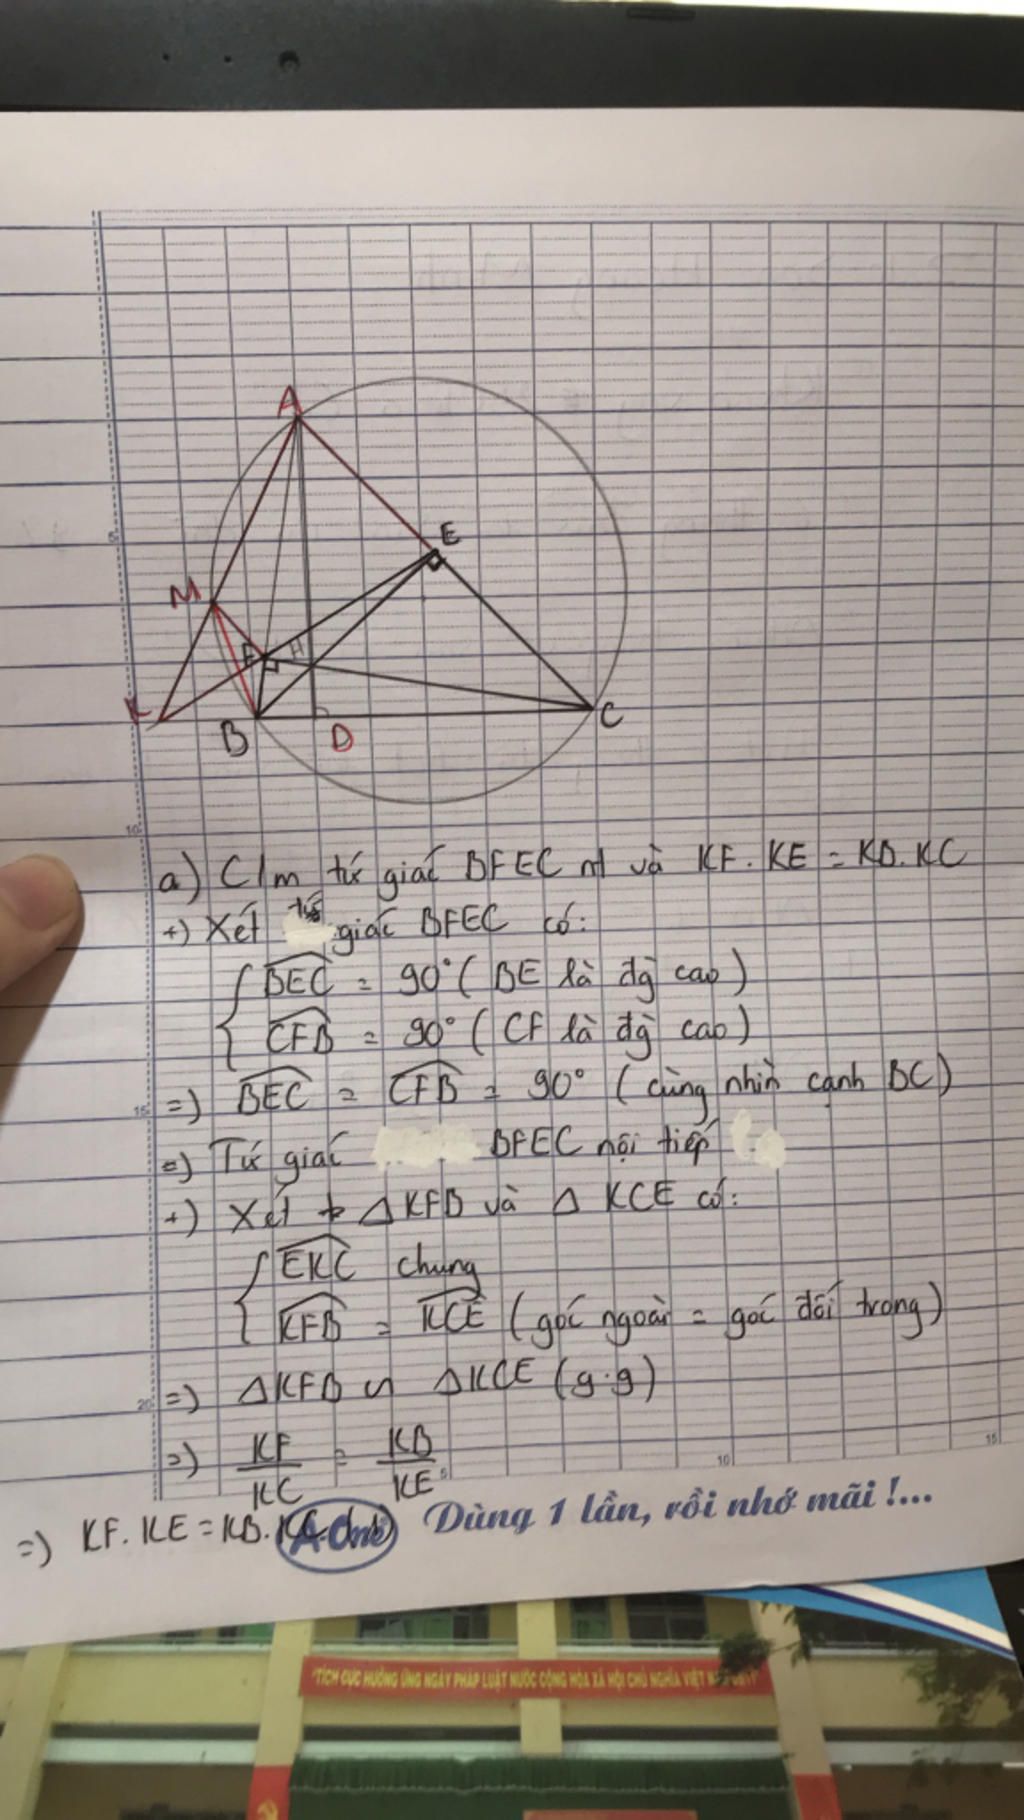 A
E
M
F H
K
B
D
C
5
10
a) C/m tứ giác BFEC nt và KF.KE = KB.KC
+) Xét tứ giác BFEC có:
BEC = 90° (BE là đg cao)
CFB = 90° (CF là đg cao)
15
=) BEC = CFB = 90° (cùng nhìn cạnh BC)
=) Tứ giác BFEC nội tiếp
+) Xét ΔKFB và Δ KCE có:
EKC chung
KFB = KCE (góc ngoài = góc đối trong)
20
=) ΔKFB ∽ ΔKCE (g.g)
=) KF/KC = KB/KE
5
10
15
=) KF.KE = KB.KC
A-One
Dùng 1 lần, rồi nhớ mãi !...
"TÍCH CỰC HƯỞNG ỨNG NGÀY PHÁP LUẬT NƯỚC CỘNG HÒA XÃ HỘI CHỦ NGHĨA VIỆT